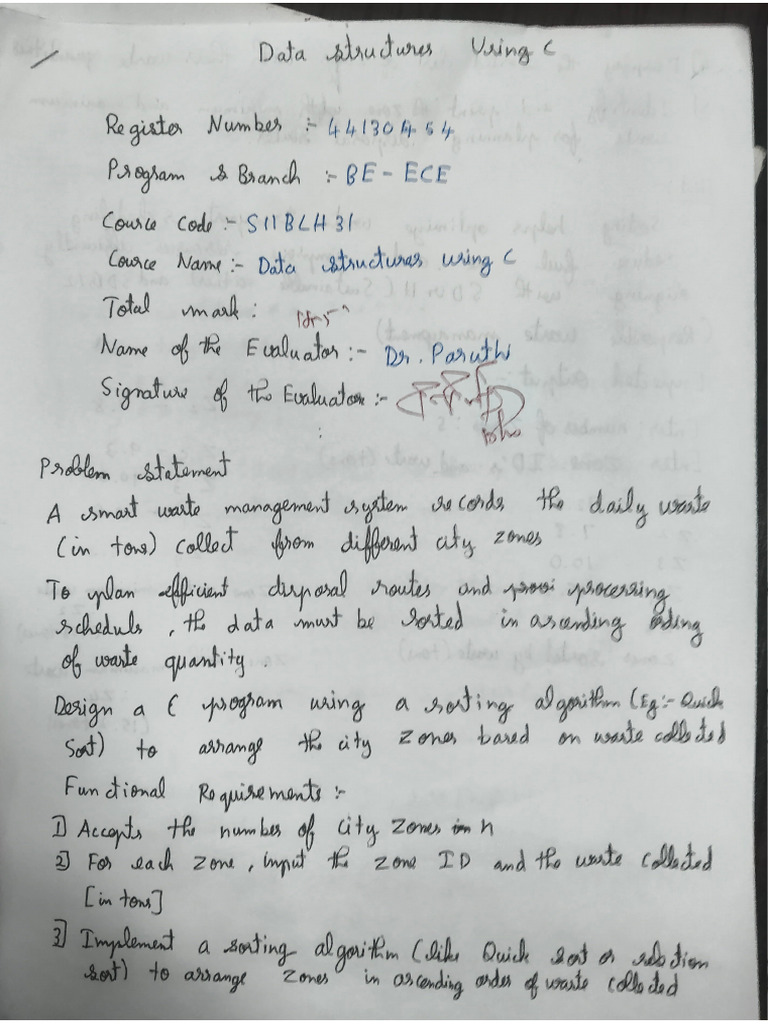 Data structures Using C
Register Number :- 44130454
Program & Branch :- BE - ECE
Cource Code :- S11BLH31
Cource Name :- Data structures using C
Total mark :
Name of the Evaluator :- Dr. Paruthi
Signature of the Evaluator :-
Problem statement
A smart waste management system records the daily waste
(in tons) collect from different city zones
To plan efficient disposal routes and processing
scheduls, the data must be sorted in ascending
of waste quantity.
Design a C program using a sorting algorithm (Eg:- Quick
Sort) to arrange the city zones based on waste collected
Functional Requirements :-
1] Accepts the number of city zones n
2] For each zone, input the zone ID and the waste collected
[in tons]
3] Implement a sorting algorithm (like Quick sort or selection
sort) to arrange zones in ascending order of waste collected